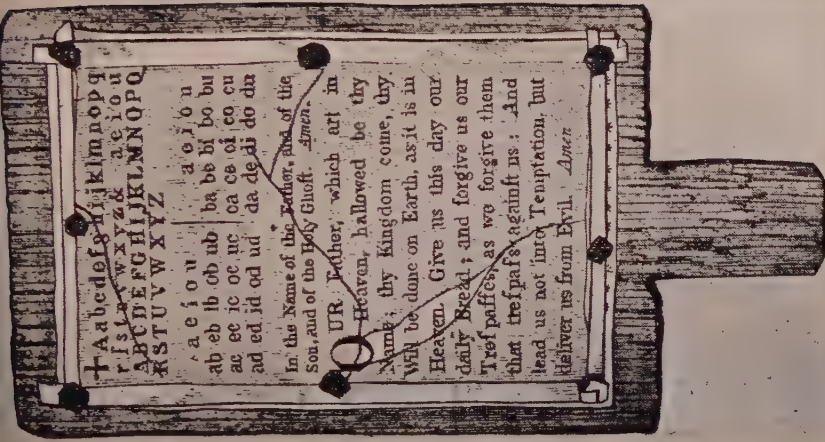 ✝Aabcdefghijklmnopq
rſstuvwxyz& aeiou
ABCDEFGHIJKLMNOPQ
RSTUVWXYZ
a e i o u a e i o u
ab eb ib ob ub ba be bi bo bu
ac ec ic oc uc ca ce ci co cu
ad ed id od ud da de di do du
In the Name of the Father, and of the
Son, and of the Holy Ghoſt. Amen.
OUR Father, which art in
Heaven, hallowed be thy
Name; thy Kingdom come, thy
Will be done on Earth, as it is in
Heaven. Give us this day our
daily Bread; and forgive us our
Treſpaſſes, as we forgive them
that treſpaſs againſt us: And
lead us not into Temptation, but
deliver us from Evil. Amen